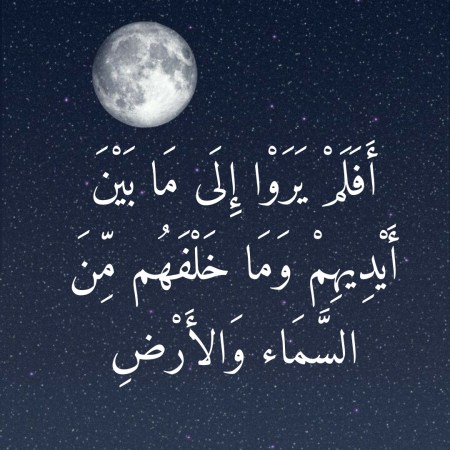 أَفَلَمْ يَرَوْا إِلَى مَا بَيْنَ
أَيْدِيهِمْ وَمَا خَلْفَهُم مِّنَ
السَّمَاء وَالأَرْضِ